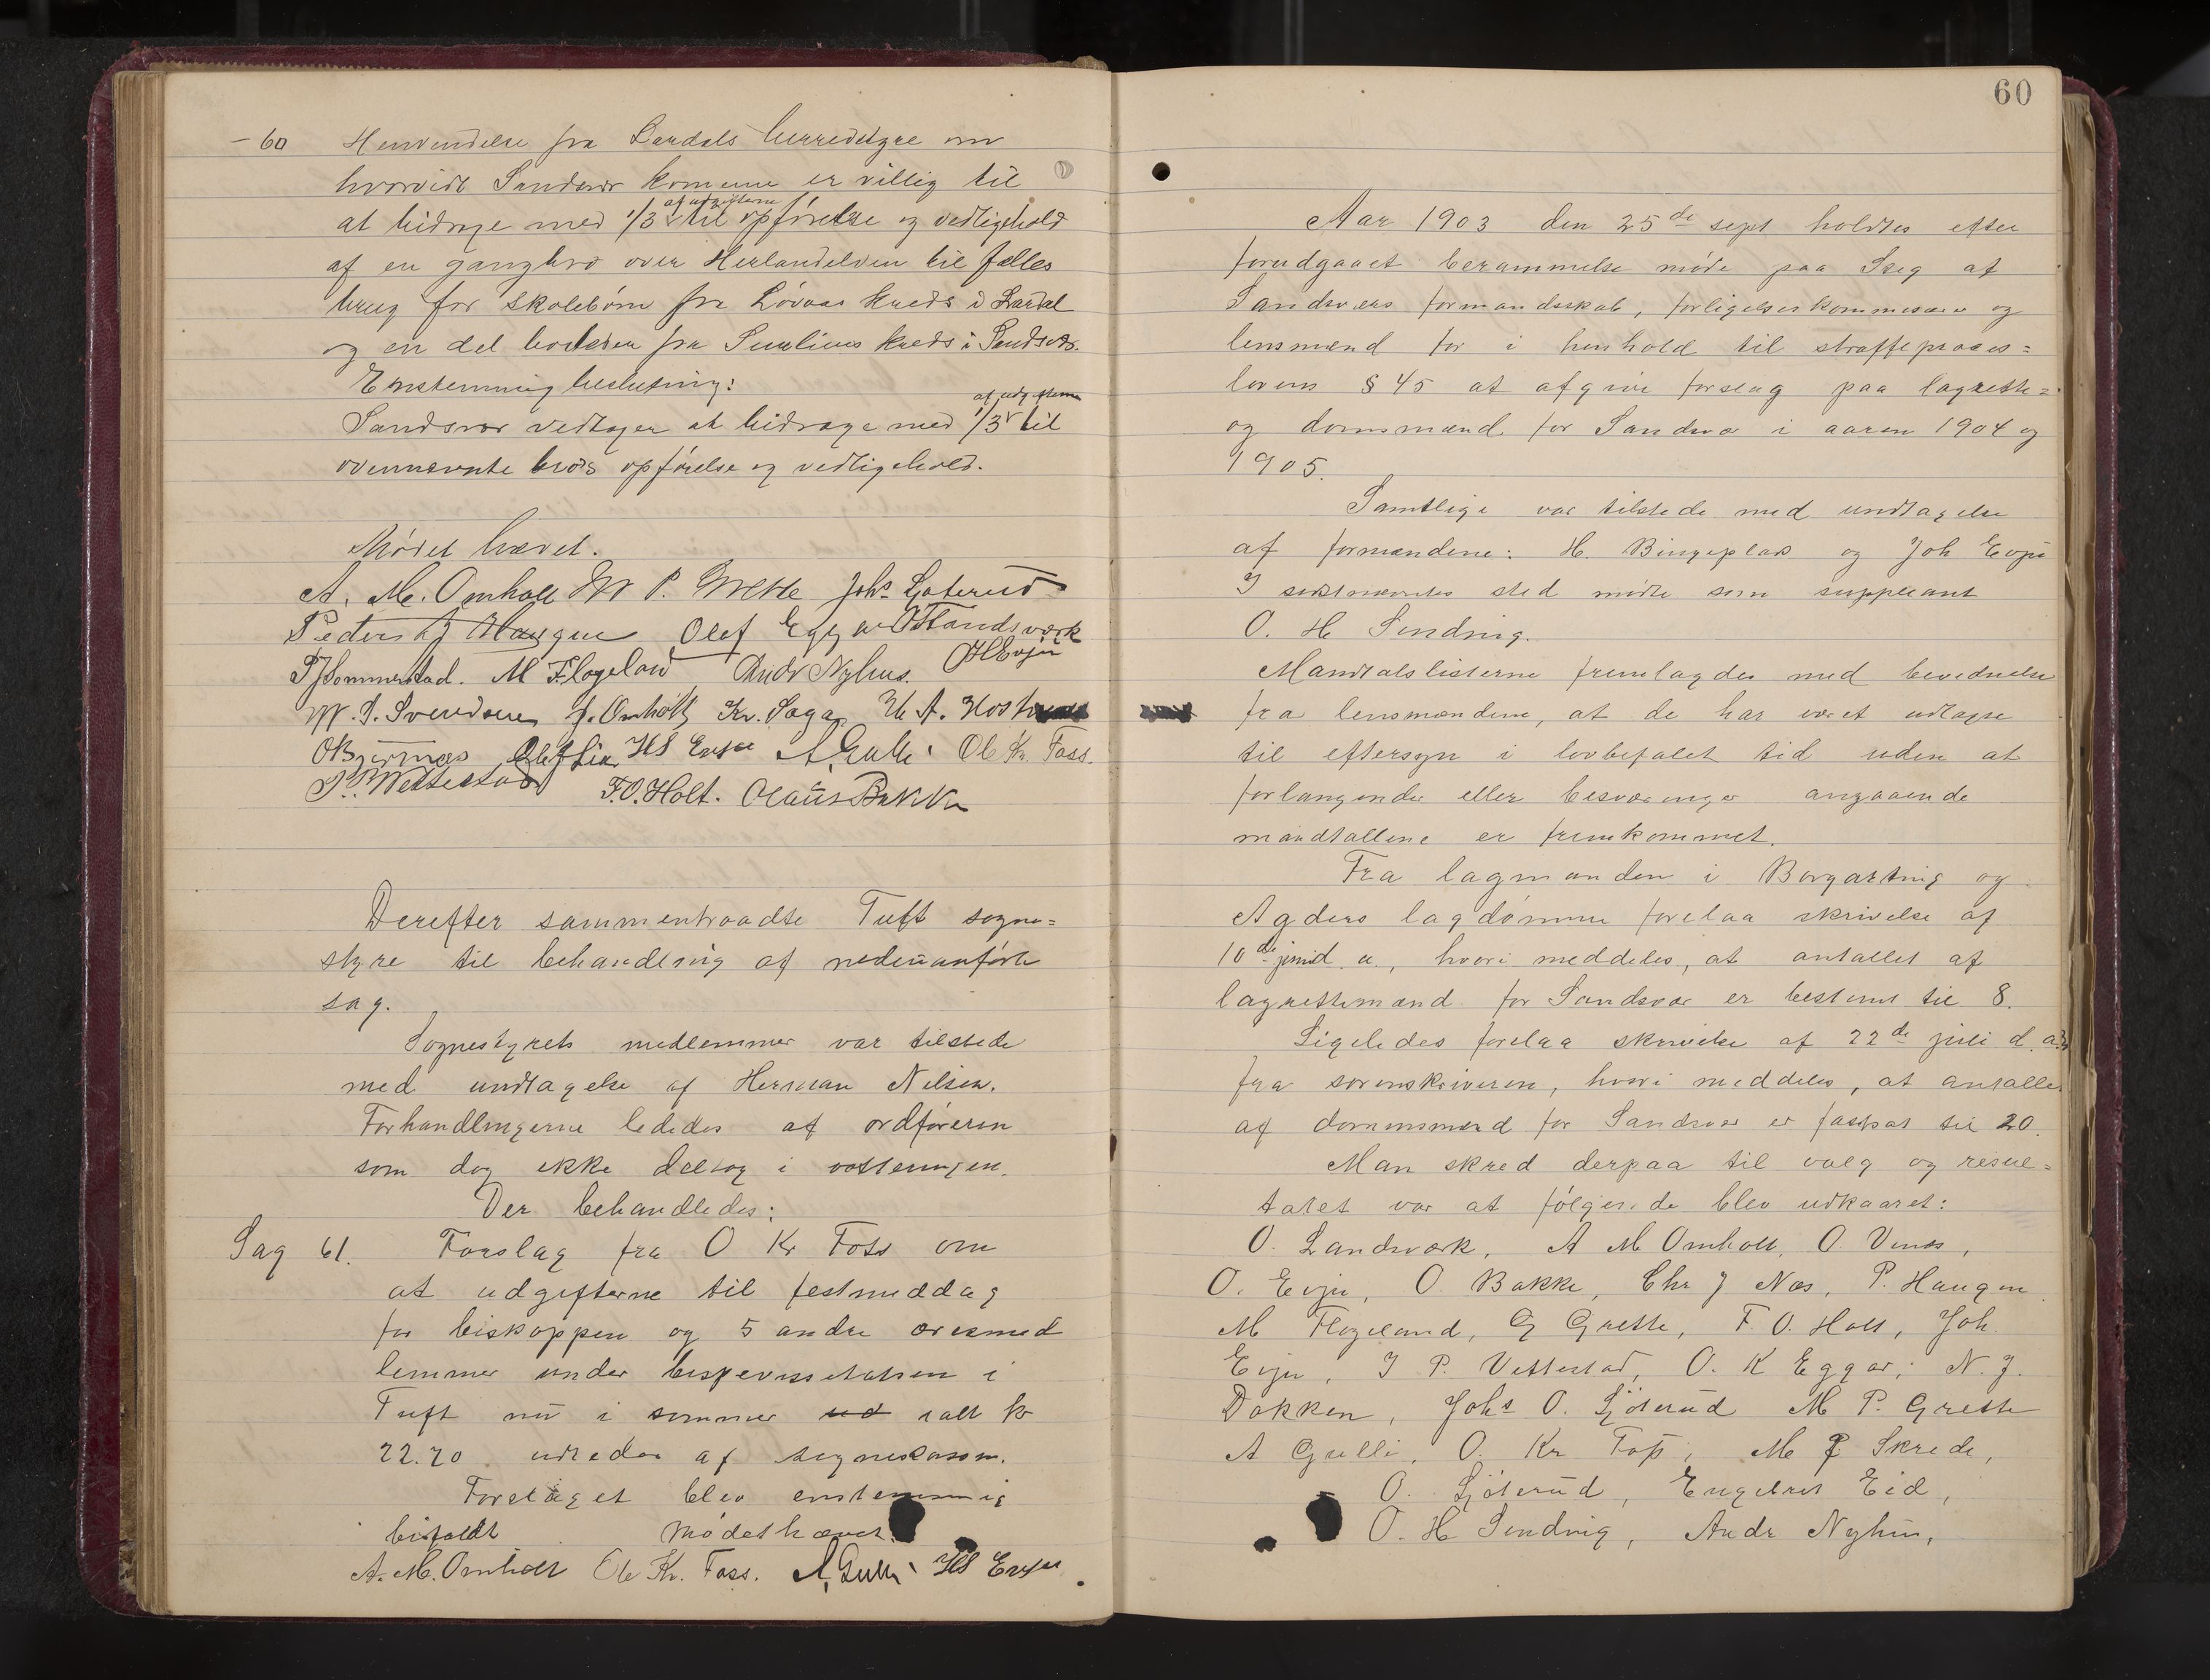 - 60 Henvendelse fra Lardals herredstyre om
hvorvidt Sandsvær komune er villig til
at bidrage med 1/3 af udgifterne til opførelse og vedligehold
af en gangbro over Herlandelven til fælles
brug for skolebørn fra Løvaas kreds i Lardal
og en del beboere fra kreds i Sandsvær.
Enstemmig beslutning:
Sandsvær vedtager at bidrage med 1/3 af udgifterne til
ovennævnte bros opførelse og vedligehold.
Mødet hævet.
A. M. Omholt M P. Grette Johs Sjøterud
Peder Haugen Olef Eggar O Landsværk
Sommerstad. M Flogeland Andr Nyhus. OHEvju
M. S. Svendsen J. Omholt Kr. Saga H. A. Kost
O Bjerknes Olef Lia HS Evju A. Gulli Ole Kr. Foss.
P. Wettestad F. O. Holt. Olaüs Bakke
Derefter sammentraadte Tuft sogne=
styre til behandling af nedenanførte
sag.
Sognestyrets medlemmer var tilstede
med undtagelse af Herman Nilsen.
Forhandlingerne lededes af ordføreren
som dog ikke deltog i votteringen.
Der behandledes:
Sag 61. Forslag fra O Kr Foss om
at udgifterne til festmiddag
for biskoppen og 5 andre æresmed
lemmer under bispevisitatsen i
Tuft nu i sommer ud ialt kr
22.70 udredes af sognekassen.
Forslaget blev enstemmig
bifaldt Mødet hævet.
A. M. Omholt Ole Kr. Foss. A. Gulli HS Evju
60
Aar 1903 den 25de sept holdtes efter
forudgaaet berammelse møde paa Steg af
Sandsværs formandsskab, forligelseskommisærer og
lensmænd for i henhold til straffeproces=
lovens § 45 at afgive forslag paa lagrette=
og domsmænd for Sandsvær i aaren 1904 og
1905.
Samtlige var tilstede med undtagelse
af formændene: H. Bingeplas og Joh Evju
I sidstnævntes sted mødte som suppleant
O. H Sendrig.
Mandtalslisterne fremlagdes med bevidnelse
fra lensmændene, at de har været udlagte
til eftersyn i lovbefalet tid uden at
forlangender eller besværinger angaaende
mandtallene er fremkommet.
Fra lagmanden i Borgarting og
Agders lagdømme forelaa skrivelse af
10de juni d. a., hvori meddeles, at antallet af
lagrettemænd for Sandsvær er bestemt til 8.
Ligeledes forelaa skrivelse af 22de juli d. a.
fra sorenskriveren, hvori meddeles, at antallet
af domsmænd for Sandsvær er fastsat til 20.
Man skred derpaa til valg og resul=
tatet var at følgende blev udkaaret:
O. Landsværk, A M Omholt, O. Vinæs,
O. Evju, O. Bakke, Chr J Næs, P. Haugen
M Flogeland, G Grette, F. O. Holt, Joh.
Evju, J P. Vettestad, O. K Eggar, N. J.
Dokken, Johs O. Sjøterud M P. Grette
A Gulli, O. Kr Foss, M P Skrede,
O. Sjøterud, Engebret Eid,
O. H Sendrig, Andr Nyhus,